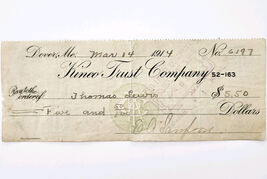 Dover, Me. Mar 14 1914 No. 6197
Kineo Trust Company 52-163
Pay to the order of Thomas Lewis $5.50
Five and
Dollars